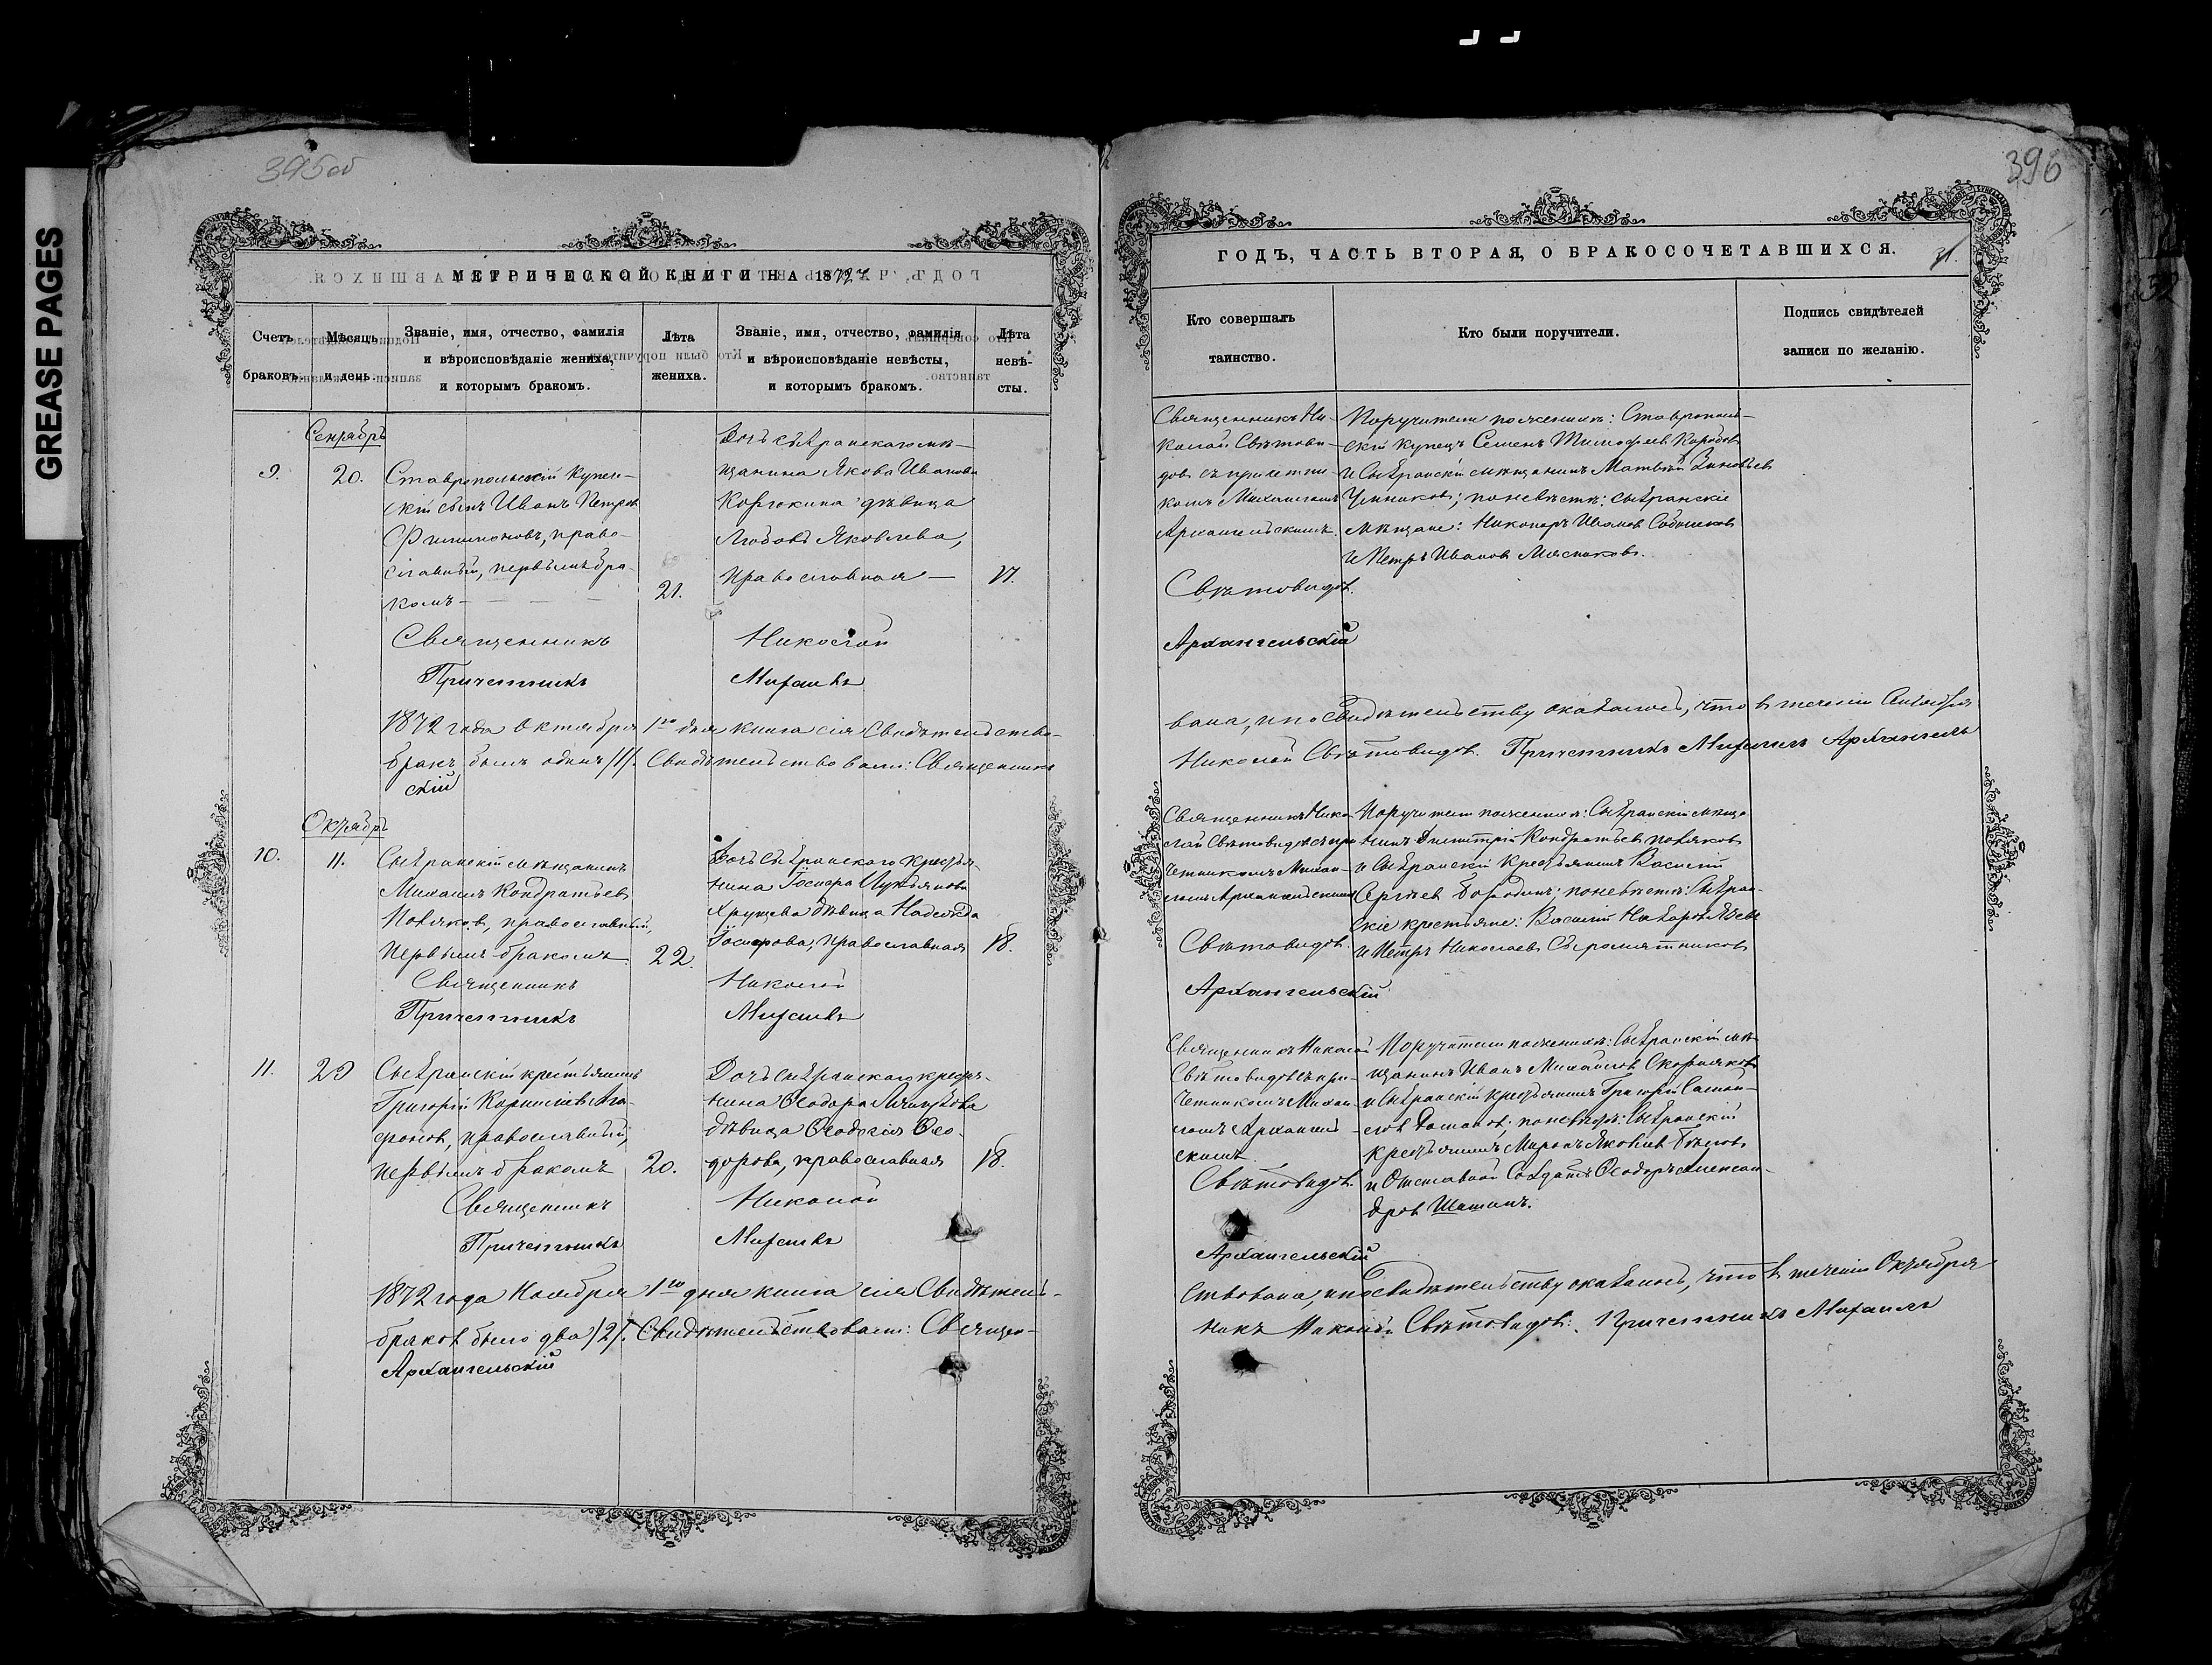 GREASE PAGES
395об
МЕТРИЧЕСКОЙ КНИГИ НА 1872
Счетъ браковъ.
Мѣсяцъ и день.
Званіе, имя, отчество, фамилія
и вѣроисповѣданіе жениха,
и которымъ бракомъ.
Лѣта
жениха.
Званіе, имя, отчество, фамилія
и вѣроисповѣданіе невѣсты,
и которымъ бракомъ.
Лѣта
невѣ-
сты.
Сентябрь
9.
20.
Ставропольскій купече-
скій сынъ Иванъ Петровъ
Филимоновъ, право-
славный, первымъ бра-
комъ
21.
Дочь сызранскаго мѣ-
щанина Якова Иванова
Корюкина дѣвица
Любовь Яковлева,
православная
17.
Священникъ Николай
Причетникъ Михаилъ
1872 года Октября 1го дня книга сія свидѣтельство-
бракъ былъ одинъ /1/. Свидѣтельствовали: Священникъ
скій
Октябрь
10.
11.
Сызранскій мѣщанинъ
Михаилъ Кондратьевъ
Новяковъ, православный,
первымъ бракомъ
22.
Дочь сызранскаго крестья-
нина
Хрущева дѣвица Надежда
православная
18.
Священникъ Николай
Причетникъ Михаилъ
11.
29
Сызранскій крестьянинъ
Григорій Корниловъ Ага-
фоновъ, православный,
первымъ бракомъ
20.
Дочь сызранскаго крестья-
нина Ѳеодора
дѣвица Ѳеодосія Ѳео-
дорова, православная
18.
Священникъ Николай
Причетникъ Михаилъ
1872 года Ноября 1го дня книга сія свидѣтель-
браковъ было два /2/. Свидѣтельствовали: Священ-
Архангельскій
396
ГОДЪ, ЧАСТЬ ВТОРАЯ, О БРАКОСОЧЕТАВШИХСЯ.
31.
32
Кто совершалъ
таинство.
Кто были поручители.
Подпись свидѣтелей
записи по желанію.
Священникъ Ни-
колай Свѣтови-
довъ съ причетни-
комъ Михаиломъ
Архангельскимъ.
Поручители по женихѣ: Ставрополь-
скій купецъ Семенъ Тимофеевъ Коробовъ
и Сызранскій мѣщанинъ Матвѣй Зиновьевъ
по невѣстѣ: сызранскіе
мѣщане: Никаноръ Ивановъ
и Петръ Ивановъ Мясниковъ.
Свѣтовидовъ.
Архангельскій
вана, и по свидѣтельству оказалось, что въ теченіи Сентября
Николай Свѣтовидовъ. Причетникъ Михаилъ Архангель
Священникъ Нико-
лай Свѣтовидовъ съ при-
четникомъ Михаи-
ломъ Архангельскимъ
Поручители по женихѣ: Сызранскій мѣща-
нинъ Димитрій Кондратьевъ Новяковъ
и Сызранскій крестьянинъ Василій
Сергѣевъ Бородинъ; по невѣстѣ: Сызран-
скіе крестьяне: Василій Назаровъ
и Петръ Николаевъ Сыромятниковъ
Свѣтовидовъ.
Архангельскій
Священникъ Николай
Свѣтовидовъ съ при-
четникомъ Михаи-
ломъ Архангель-
скимъ
Поручители по женихѣ: Сызранскій мѣ-
щанинъ Иванъ Михайловъ Скорняковъ
и Сызранскій крестьянинъ Григорій Самой-
ловъ по невѣстѣ: Сызранскій
крестьянинъ Миронъ Яковлевъ Бѣловъ
и Отставной Солдатъ Ѳеодоръ Алексан-
дровъ Шашинъ.
Свѣтовидовъ.
Архангельскій
ствована, и по свидѣтельству оказалось, что въ теченіи Октября
никъ Николай Свѣтовидовъ. Причетникъ Михаилъ